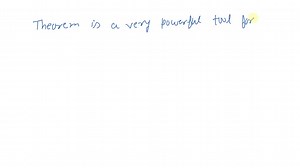 Theorem is a very powerful tool for